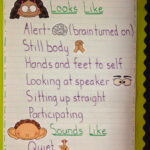 Looks Like
Alert- (brain turned on)
Still body
Hands and feet to self
Looking at speaker
Sitting up straight
Participating
Sounds Like
Quiet